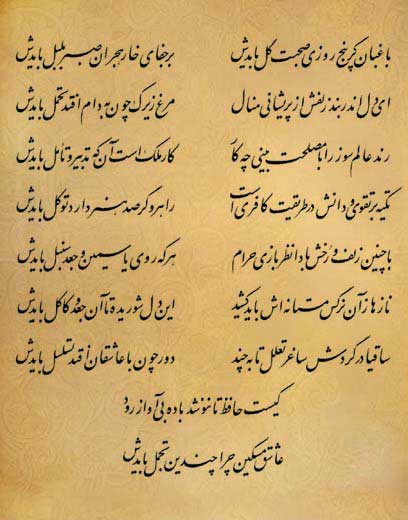 باغبان گر پنج روزی صحبت گل بایدش
بر جفای خار هجران صبر بلبل بایدش
ای دل اندر بند زلفش از پریشانی منال
مرغ زیرک چون به دام افتد تحمل بایدش
رند عالم سوز را با مصلحت بینی چه کار
کار ملک است آن که تدبیر و تأمل بایدش
تکیه بر تقوی و دانش در طریقت کافریست
راهرو گر صد هنر دارد توکل بایدش
با چنین زلف و رخش بادا نظر بازی حرام
هر که روی یاسمین و جعد سنبل بایدش
نازها زآن نرگس مستانه اش باید کشید
این دل شوریده تا آن جعد و کاکل بایدش
ساقیا در گردش ساغر تعلل تا به چند
دور چون با عاشقان افتد تسلسل بایدش
کیست حافظ تا ننوشد باده بی آواز رود
عاشق مسکین چرا چندین تجمل بایدش